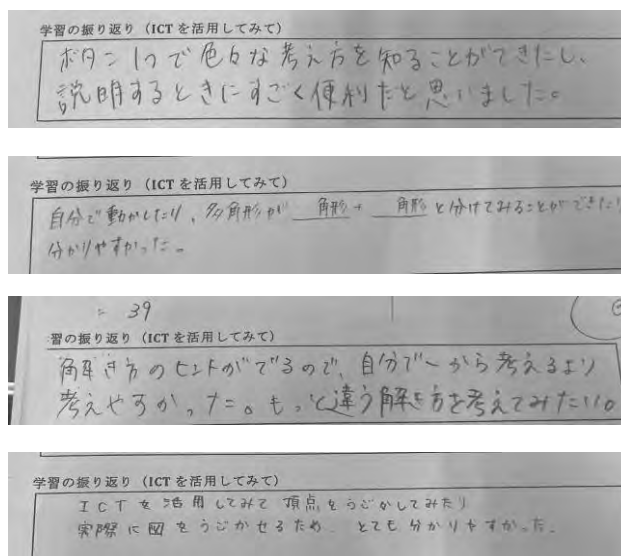 学習の振り返り(ICTを活用してみて)
ボタン1つで色々な考え方を知ることができたし、
説明するときにすごく便利だと思いました。
学習の振り返り(ICTを活用してみて)
自分で動かしたり、多角形が__角形+__角形と分けてみることができたり
分かりやすかった。
= 39
習の振り返り(ICTを活用してみて)
解き方のヒントがでるので、自分で一から考えるより
考えやすかった。もっと違う解き方を考えてみたい。
学習の振り返り(ICTを活用してみて)
ICTを活用してみて頂点をうごかしてみたり
実際に図をうごかせるため、とても分かりやすかった。